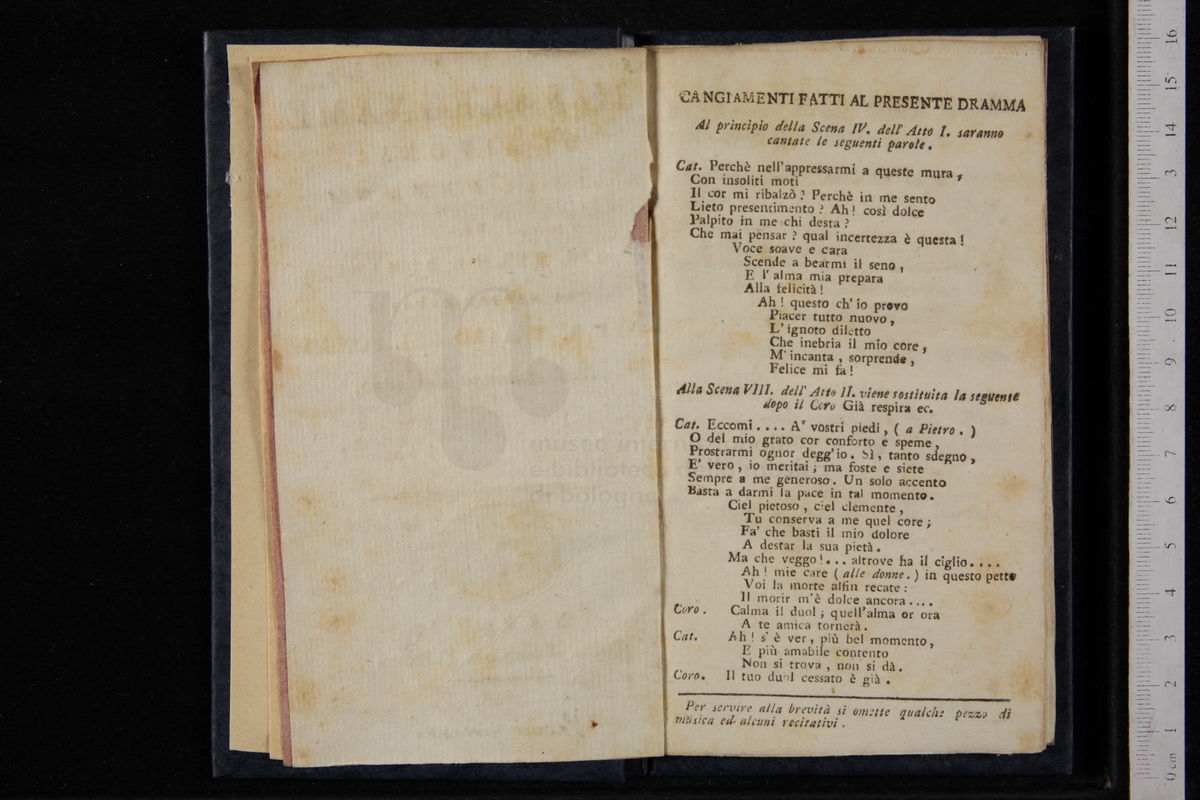 CANGIAMENTI FATTI AL PRESENTE DRAMMA
Al principio della Scena IV. dell' Atto I. saranno
cantate le seguenti parole.
Cat. Perchè nell'appressarmi a queste mura,
Con insoliti moti
Il cor mi ribalzò? Perchè in me sento
Lieto presentimento? Ah! così dolce
Palpito in me chi desta?
Che mai pensar? qual incertezza è questa!
Voce soave e cara
Scende a bearmi il seno,
E l' alma mia prepara
Alla felicità!
Ah! questo ch' io provo
Piacer tutto nuovo,
L' ignoto diletto
Che inebria il mio core,
M' incanta, sorprende,
Felice mi fa!
Alla Scena VIII. dell' Atto II. viene sostituita la seguente
dopo il Coro Già respira ec.
Cat. Eccomi.... A' vostri piedi, (a Pietro.)
O del mio grato cor conforto e speme,
Prostrarmi ognor degg'io. Sì, tanto sdegno,
E' vero, io meritai; ma foste e siete
Sempre a me generoso. Un solo accento
Basta a darmi la pace in tal momento.
Ciel pietoso, ciel clemente,
Tu conserva a me quel core;
Fa' che basti il mio dolore
A destar la sua pietà.
Ma che veggo!... altrove ha il ciglio....
Ah! mie care (alle donne.) in questo petto
Voi la morte alfin recate:
Il morir m'è dolce ancora....
Coro. Calma il duol; quell'alma or ora
A te amica tornerà.
Cat. Ah! s' è ver, più bel momento,
E più amabile contento
Non si trova, non si dà.
Coro. Il tuo duol cessato è già.
Per servire alla brevità si omette qualche pezzo di
musica ed alcuni recitativi.
museo intern
e biblioteca
di bologna
0 cm 1 2 3 4 5 6 7 8 9 10 11 12 13 14 15 16